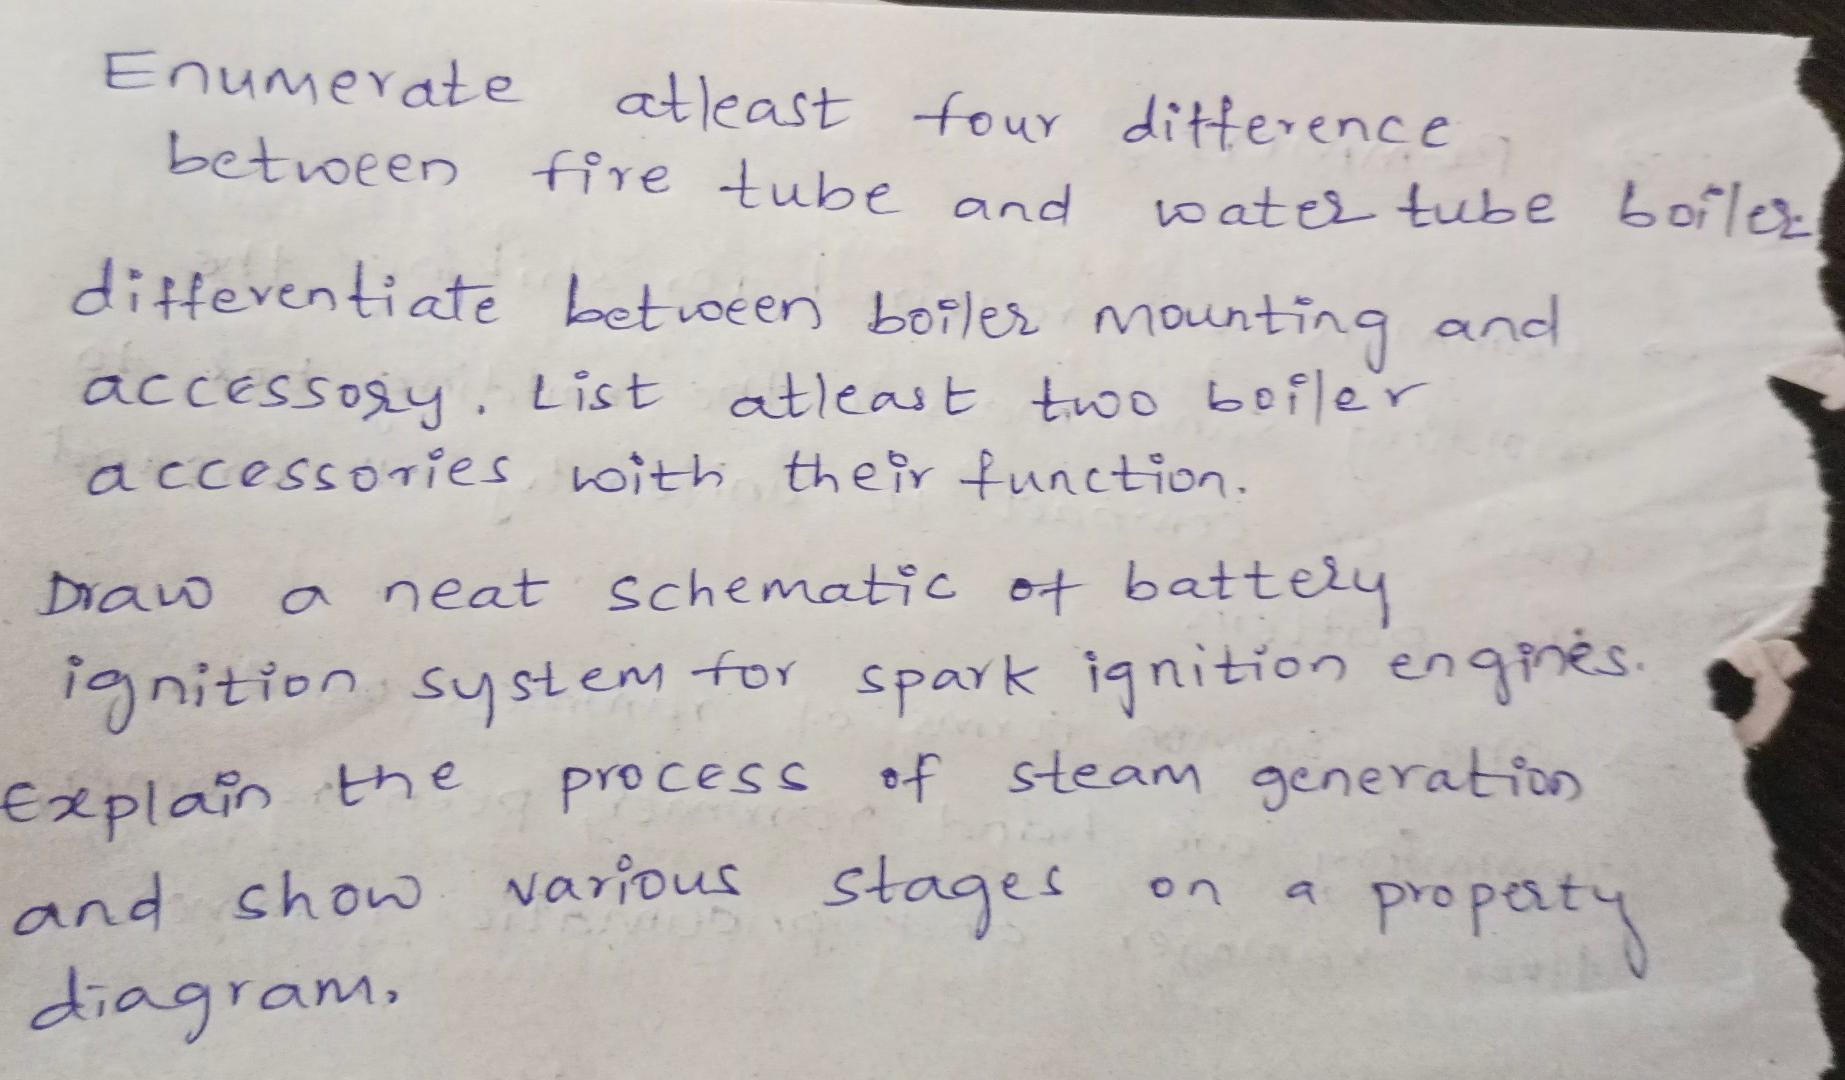 Enumerate atleast four difference
between fire tube and water tube boiler
differentiate between boiler mounting and
accessory. List atleast two boiler
accessories with their function.
Draw a neat schematic of battery
ignition system for spark ignition engines.
Explain the process of steam generation
and show various stages on a property
diagram.